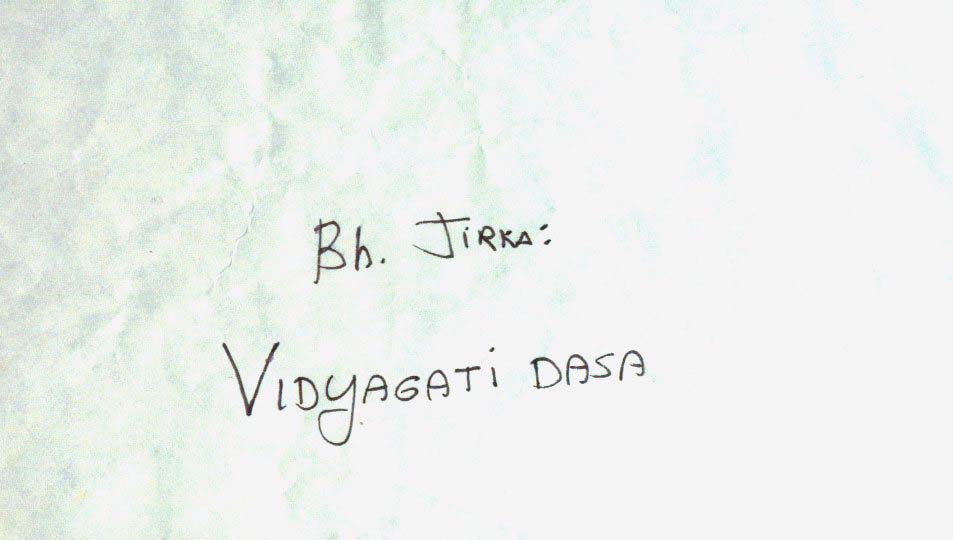 Bh. Jirka:
Vidyagati dasa